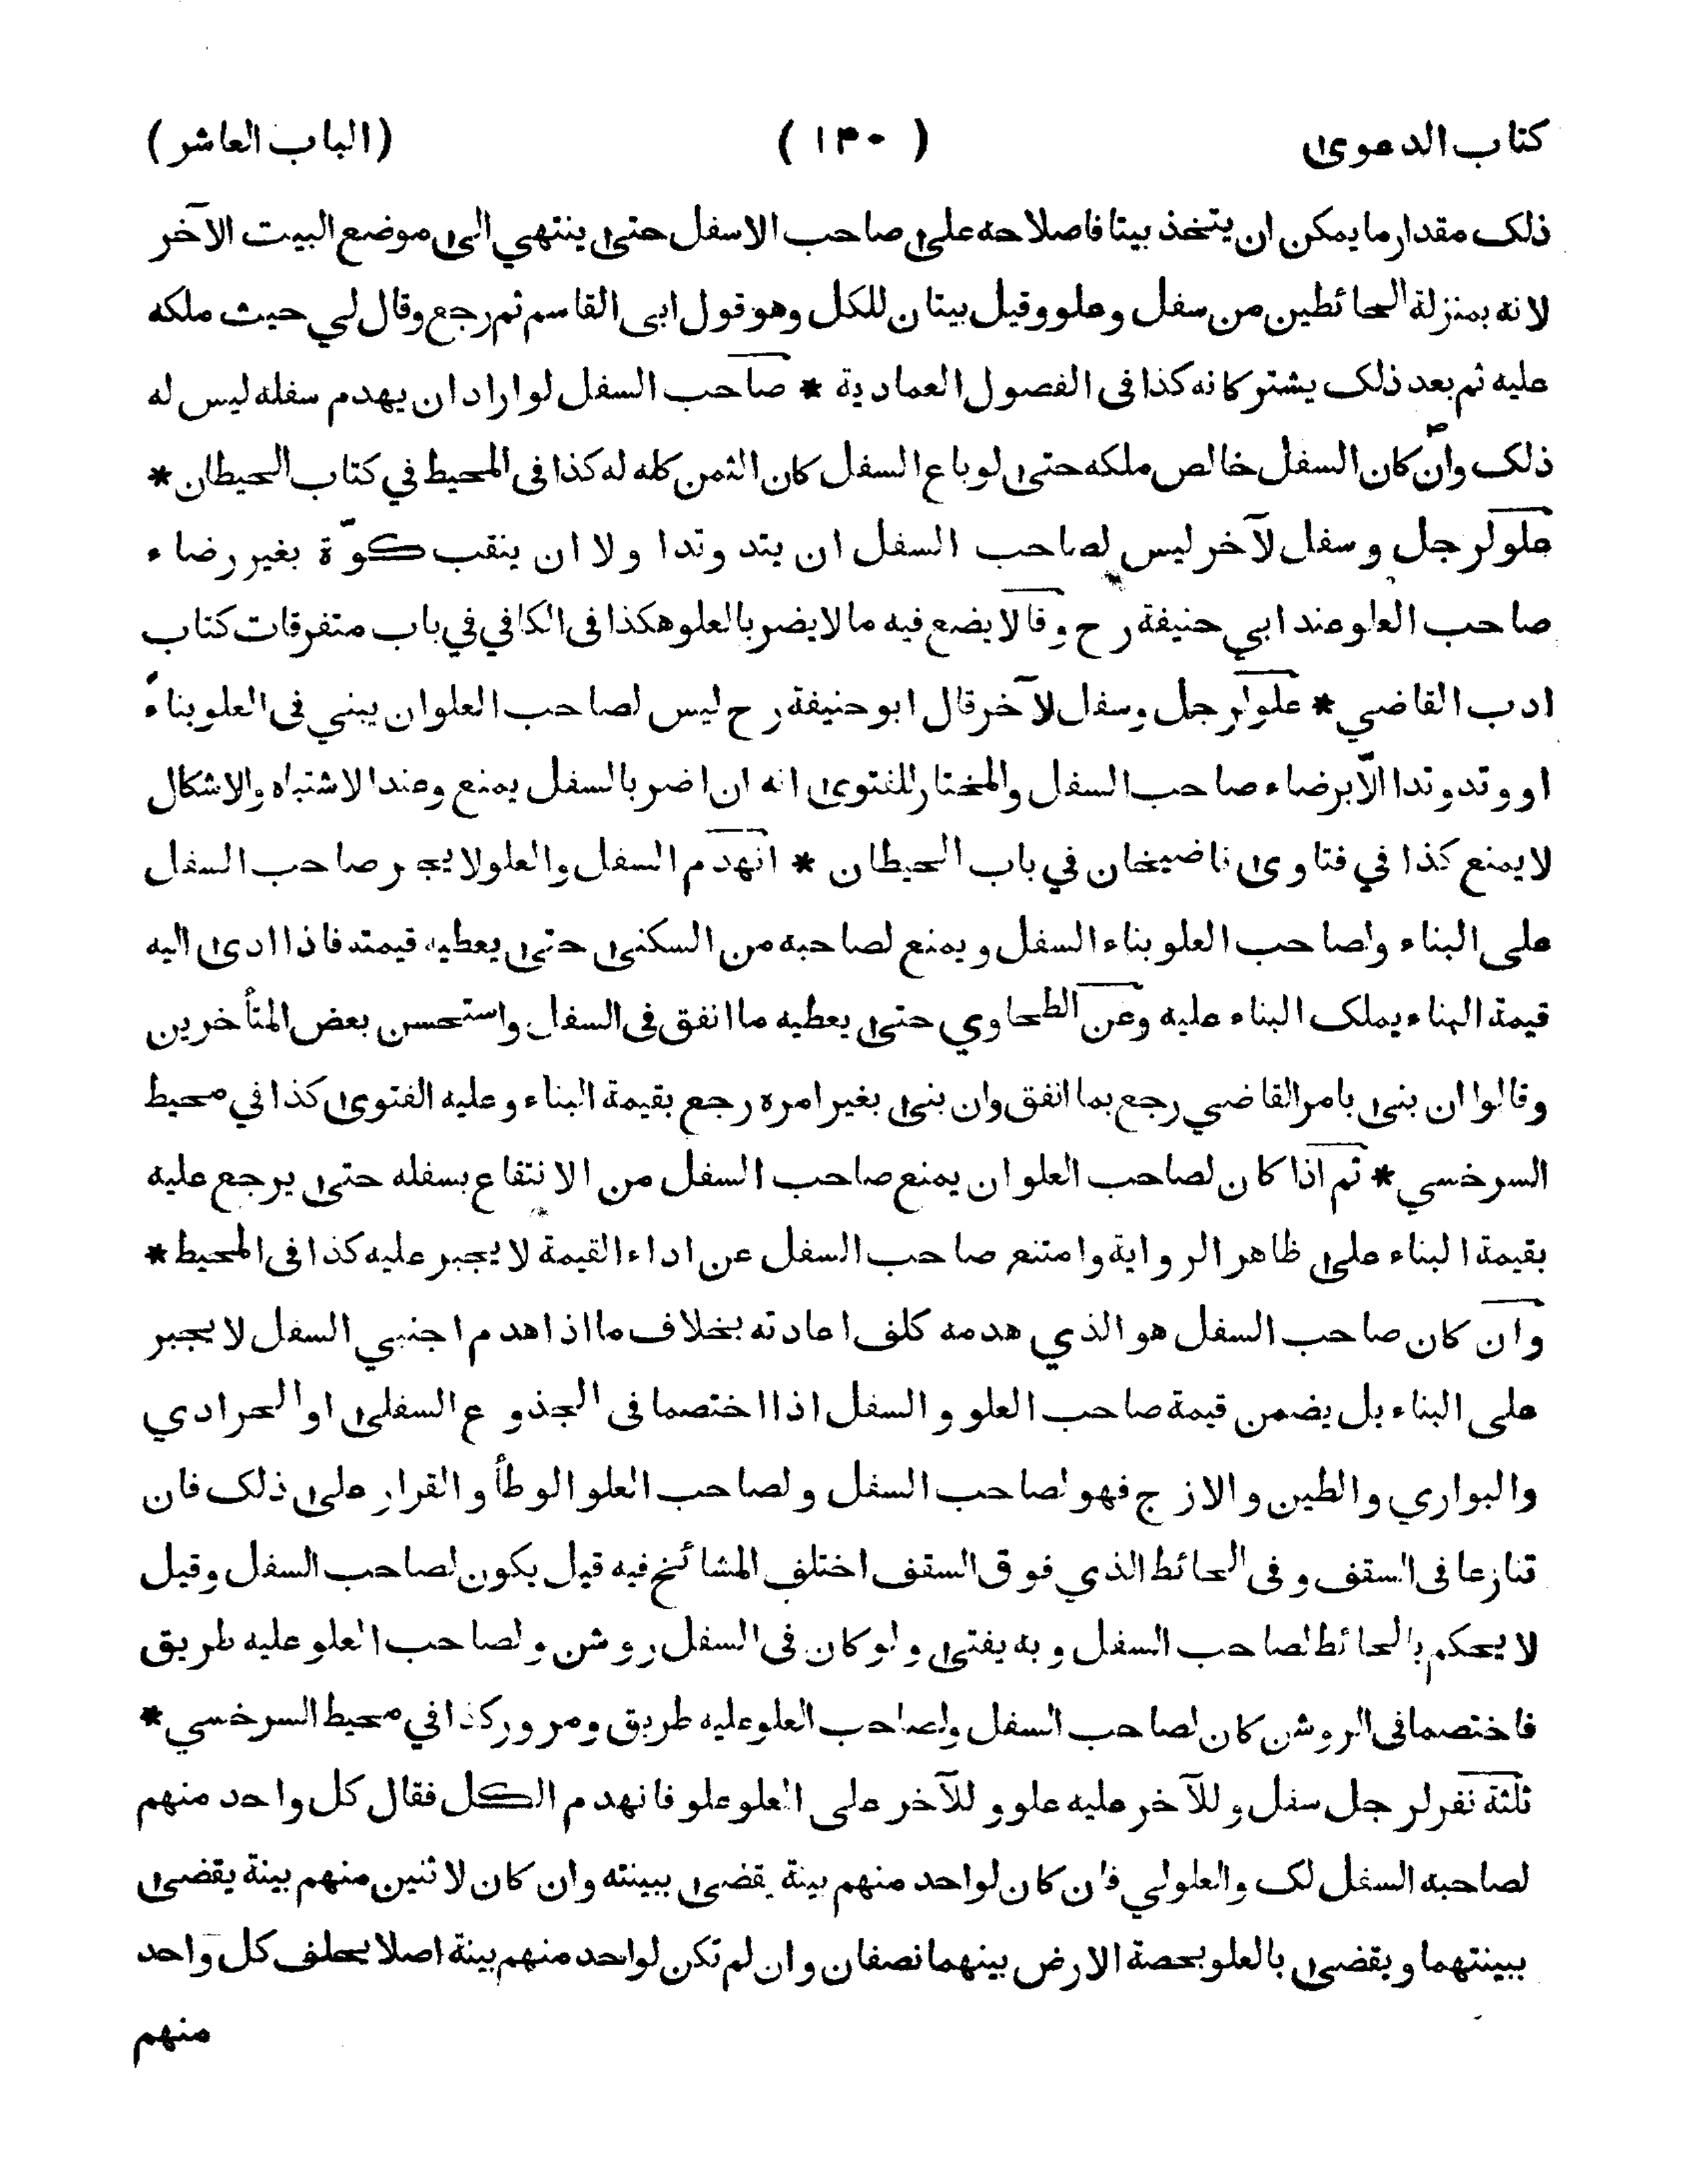 كتاب الدعوى ( ١٣٠ ) (الباب العاشر)
ذلك مقدار ما يمكن ان يتخذ بيتا فاصلاحه على صاحب الاسفل حتى ينتهي الى موضع البيت الآخر
لانه بمنزلة الحائطين من سفل وعلو وقيل بيتان للكل وهو قول ابى القاسم ثم رجع وقال لي حيث ملكه
عليه ثم بعد ذلك يشتركانه كذا فى الفصول العمادية * صاحب السفل لو اراد ان يهدم سفله ليس له
ذلك وان كان السفل خالص ملكه حتى لو باع السفل كان الثمن كله له كذا فى المحيط في كتاب الحيطان *
علو لرجل وسفل لآخر ليس لصاحب السفل ان يتد وتدا ولا ان ينقب كوّة بغير رضاء
صاحب العلو عند ابي حنيفة رح وقالا يضع فيه ما لا يضر بالعلو هكذا فى الكافي في باب متفرقات كتاب
ادب القاضي * علو لرجل وسفل لآخر قال ابو حنيفة رح ليس لصاحب العلو ان يبني فى العلو بناءً
او وتد وتدا الّا برضاء صاحب السفل والمختار للفتوى انه ان اضر بالسفل يمنع وعند الاشتباه والاشكال
لا يمنع كذا في فتاوى قاضيخان في باب الحيطان * انهدم السفل والعلو لا يجبر صاحب السفل
على البناء ولصاحب العلو بناء السفل ويمنع لصاحبه من السكنى حتى يعطيه قيمته فاذا ادى اليه
قيمة البناء يملك البناء عليه وعن الطحاوي حتى يعطيه ما انفق فى السفل واستحسن بعض المتأخرين
وقالوا ان بنى بامر القاضي رجع بما انفق وان بنى بغير امره رجع بقيمة البناء وعليه الفتوى كذا في محيط
السرخسي * ثم اذا كان لصاحب العلو ان يمنع صاحب السفل من الانتفاع بسفله حتى يرجع عليه
بقيمة البناء على ظاهر الرواية وامتنع صاحب السفل عن اداء القيمة لا يجبر عليه كذا فى المحيط *
وان كان صاحب السفل هو الذي هدمه كلف اعادته بخلاف ما اذا هدم اجنبي السفل لا يجبر
على البناء بل يضمن قيمة صاحب العلو و السفل اذا اختصما فى الجذوع السفلى او الحرادي
والبواري والطين والازج فهو لصاحب السفل ولصاحب العلو الوطأ والقرار على ذلك فان
تنازعا فى السقف وفى الحائط الذي فوق السقف اختلف المشائخ فيه قيل يكون لصاحب السفل وقيل
لا يحكم بالحائط لصاحب السفل وبه يفتى ولو كان فى السفل روشن ولصاحب العلو عليه طريق
فاختصما فى الروشن كان لصاحب السفل ولصاحب العلو عليه طريق ومرور كذا في محيط السرخسي *
ثلثة نفر لرجل سفل وللآخر عليه علو وللآخر على العلو علو فانهدم الكل فقال كل واحد منهم
لصاحبه السفل لك والعلو لي فان كان لواحد منهم بينة يقضى ببينته وان كان لاثنين منهم بينة يقضى
ببينتهما ويقضى بالعلو بحصة الارض بينهما نصفان وان لم تكن لواحد منهم بينة اصلا يحلف كل واحد
منهم